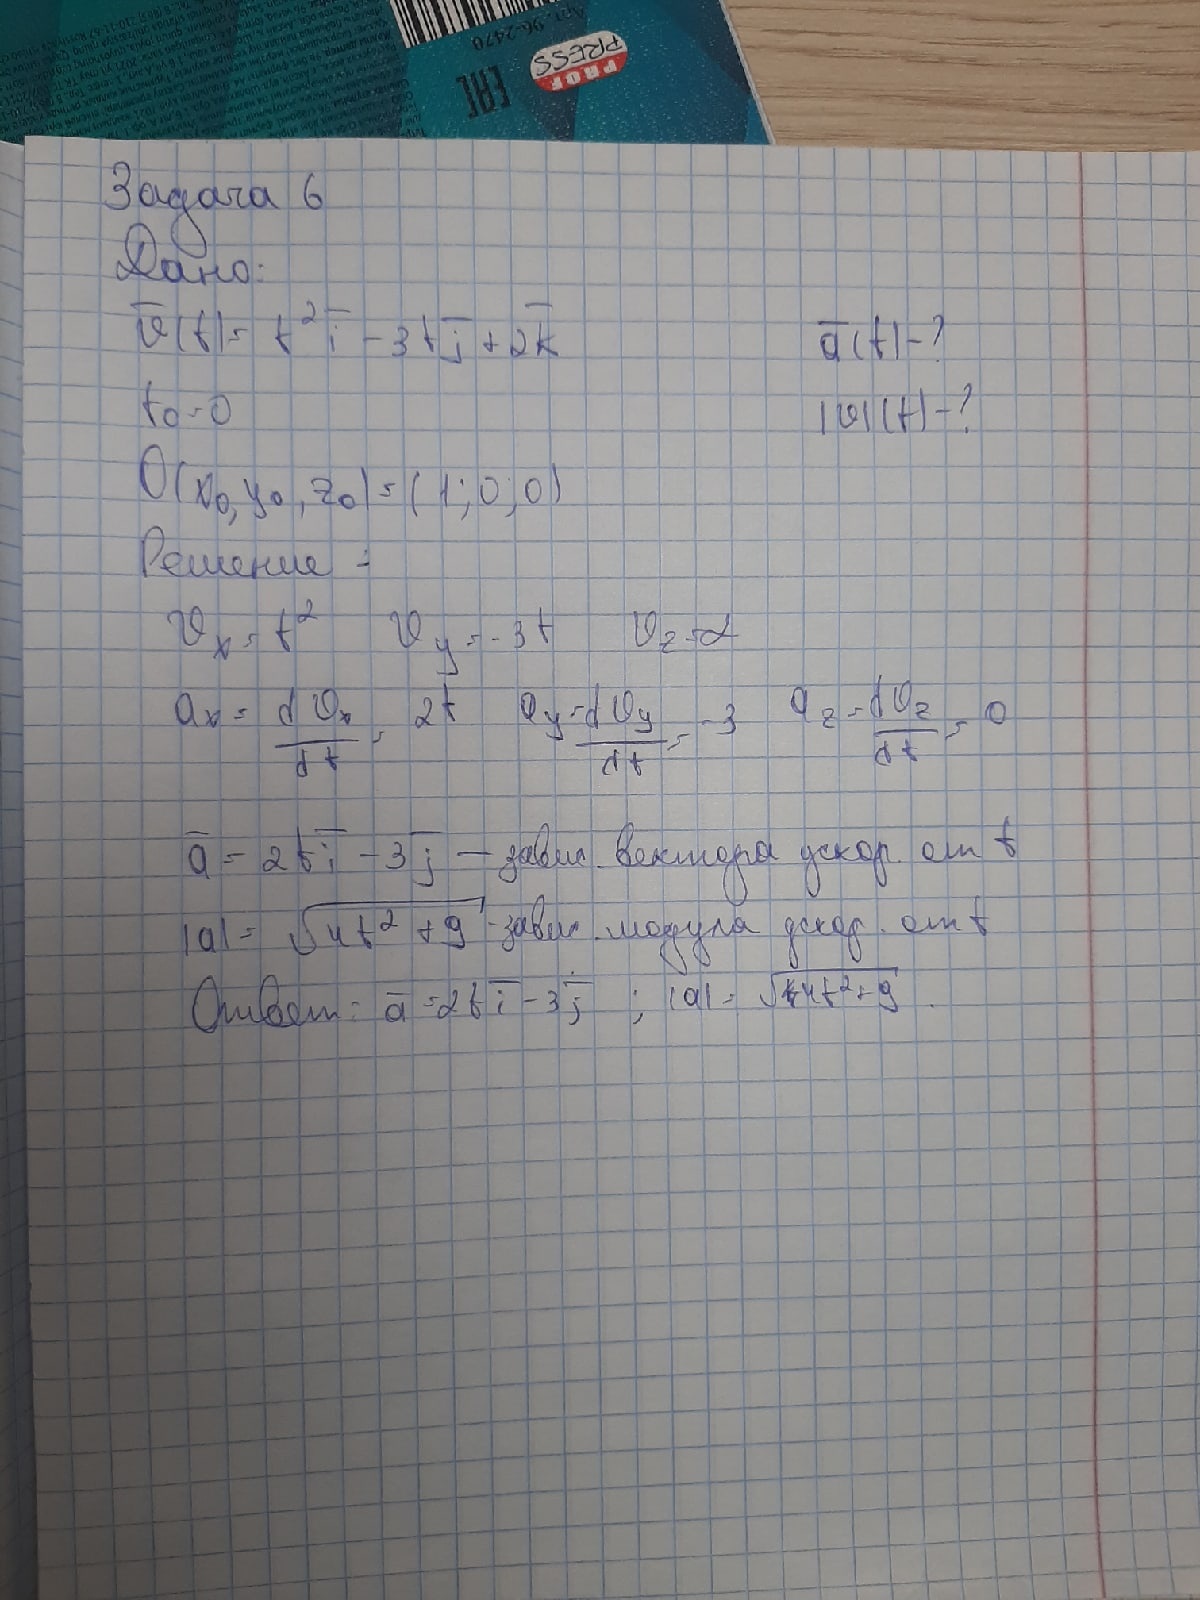 Арт. 96-2470
PROF
PRESS
EAC
Задача 6
Дано:
v̅(t) = t² i̅ - 3t j̅ + 2k̅
a̅(t) - ?
t₀ = 0
|v|(t) - ?
O(x₀, y₀, z₀) = (1; 0; 0)
Решение:
vₓ = t² v_y = -3t v_z = 2
aₓ = dvₓ/dt = 2t a_y = dv_y/dt = -3 a_z = dv_z/dt = 0
a̅ = 2t i̅ - 3 j̅ — завис. вектора ускор. от t
|a| = √(4t² + 9) - завис. модуля ускор. от t
Ответ: a̅ = 2t i̅ - 3 j̅ ; |a| = √(4t² + 9) .